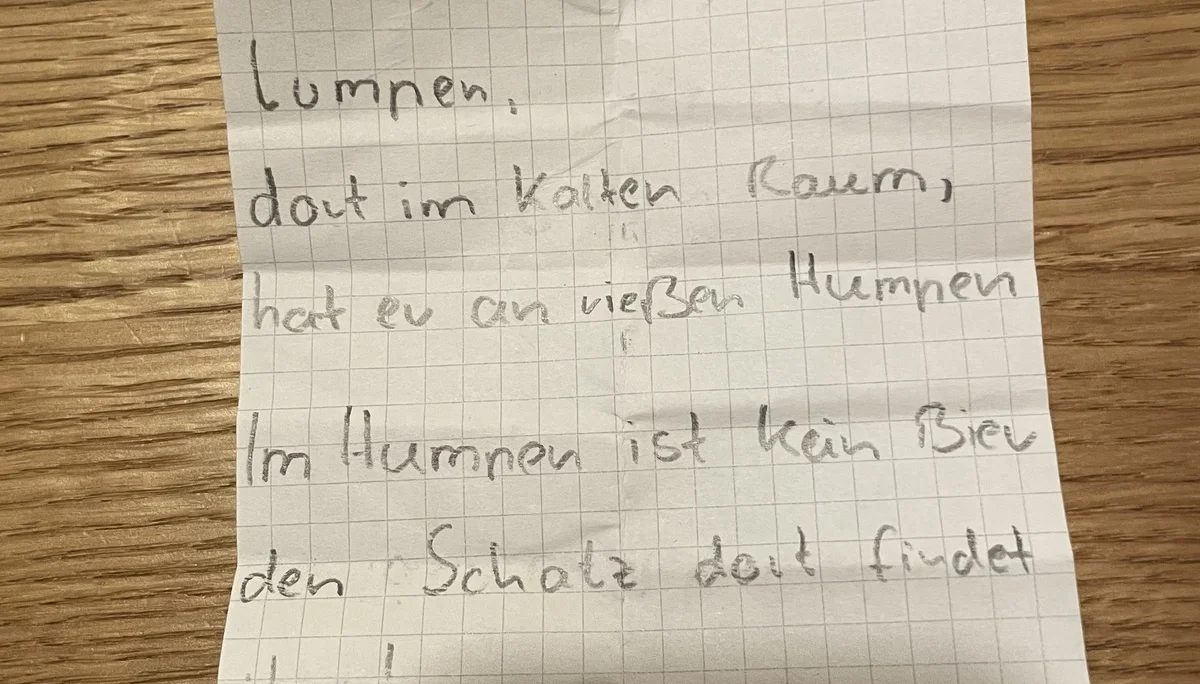 Lumpen.
dort im kalten Raum,
hat er an rießen Humpen
Im Humpen ist kein Bier
den Schatz dort findet